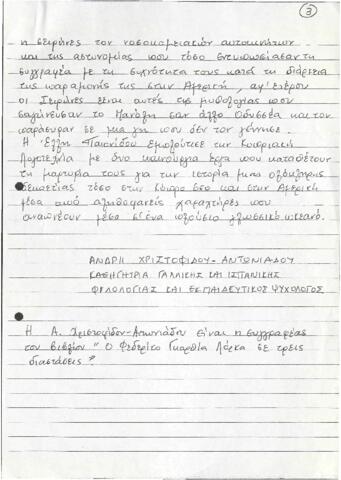 3
η σειρήνες του νοσοκομειακών αυτοκινήτων
και της αστυνομίας που τόσο εντυπωσίασαν τη
συγγραφέα με τη συχνότητα τους κατά τη διάρκεια
της παραμονής της στην Αμερική, αφ' ετέρου
οι Σειρήνες είναι αυτές της μυθολογίας που
σαγήνευσαν το Μανώλη σαν άλλο Οδυσσέα και τον
παρέσυραν σε μια γη που δεν τον γέννησε.
Η Έλλη Παιονίδου Εμπλούτισε την Κυπριακή
Λογοτεχνία με δυο καινούργια έργα που καταθέτουν
τη μαρτυρία τους για την ιστορία μιας ολόκληρης
δεκαετίας τόσο στην Κύπρο όσο και στην Αμερική
μέσα από αληθοφανείς χαρακτήρες που
αναπνέουν μέσα σ' ένα πλούσιο γλωσσικό ωκεανό.
ΑΝΔΡΗ ΧΡΙΣΤΟΦΙΔΟΥ-ΑΝΤΩΝΙΑΔΟΥ
ΚΑΘΗΓΗΤΡΙΑ ΓΑΛΛΙΚΗΣ ΚΑΙ ΙΣΠΑΝΙΚΗΣ
ΦΙΛΟΛΟΓΙΑΣ ΚΑΙ ΕΚΠΑΙΔΕΥΤΙΚΟΣ ΨΥΧΟΛΟΓΟΣ
Η Α. Χριστοφίδου-Αντωνιάδου είναι η συγγραφέας
του βιβλίου " Ο Φεδερίκο Γκαρθία Λόρκα σε τρεις
διαστάσεις"